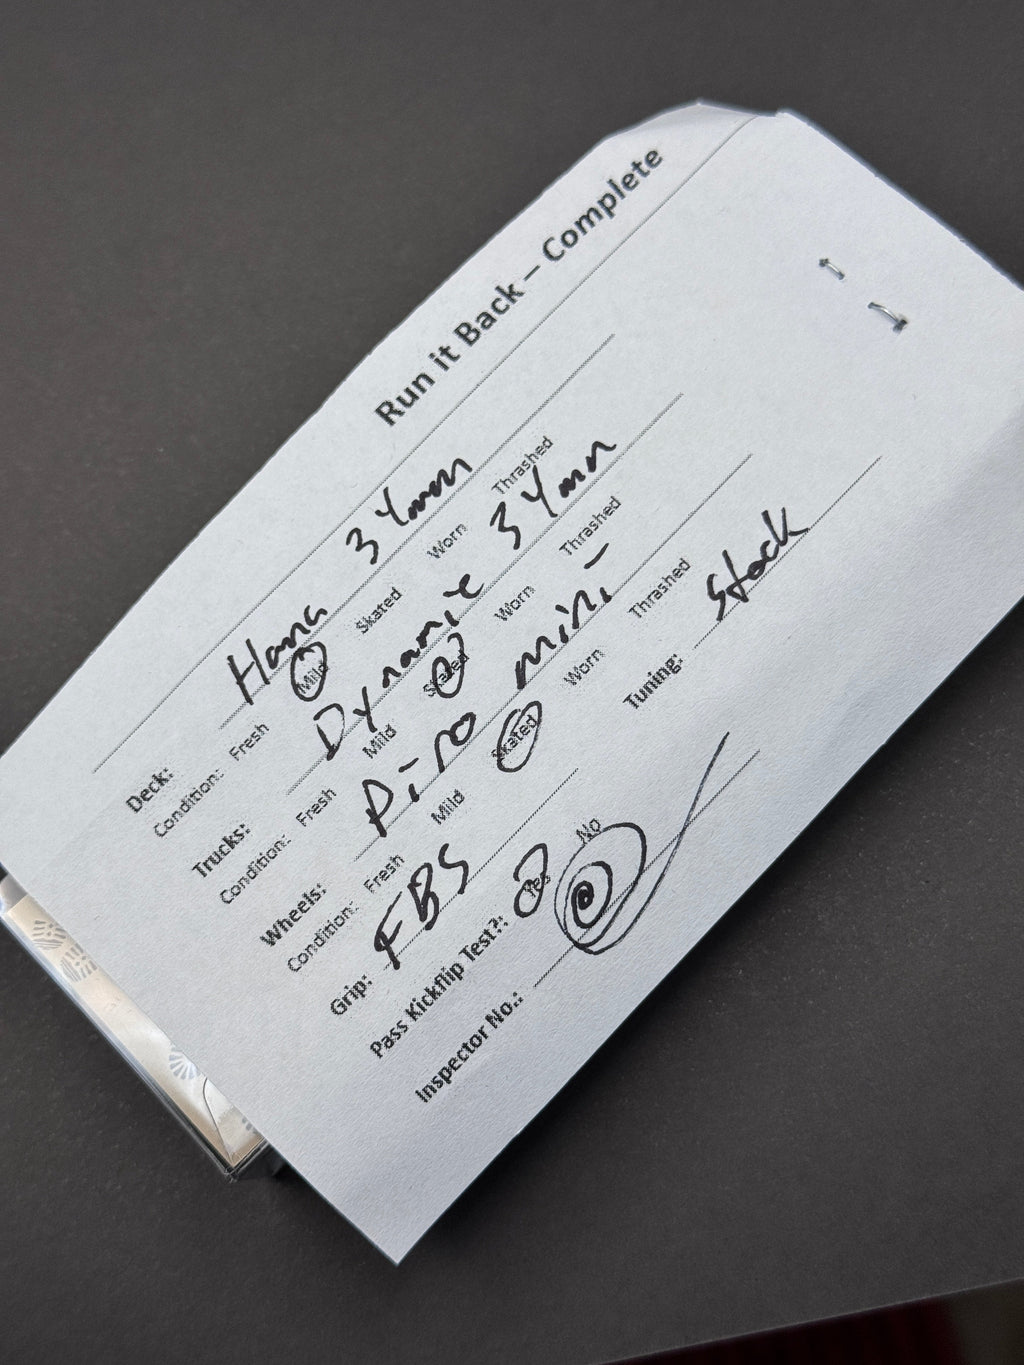 Run it Back – Complete
Deck: Hana 34mm
Condition: Fresh Mild Skated Worn Thrashed
Trucks: Dynamic 34mm
Condition: Fresh Mild Skated Worn Thrashed
Wheels: Piro mini
Condition: Fresh Mild Skated Worn Thrashed
Grip: FBS Tuning: Stock
Pass Kickflip Test?: Yes No
Inspector No.: